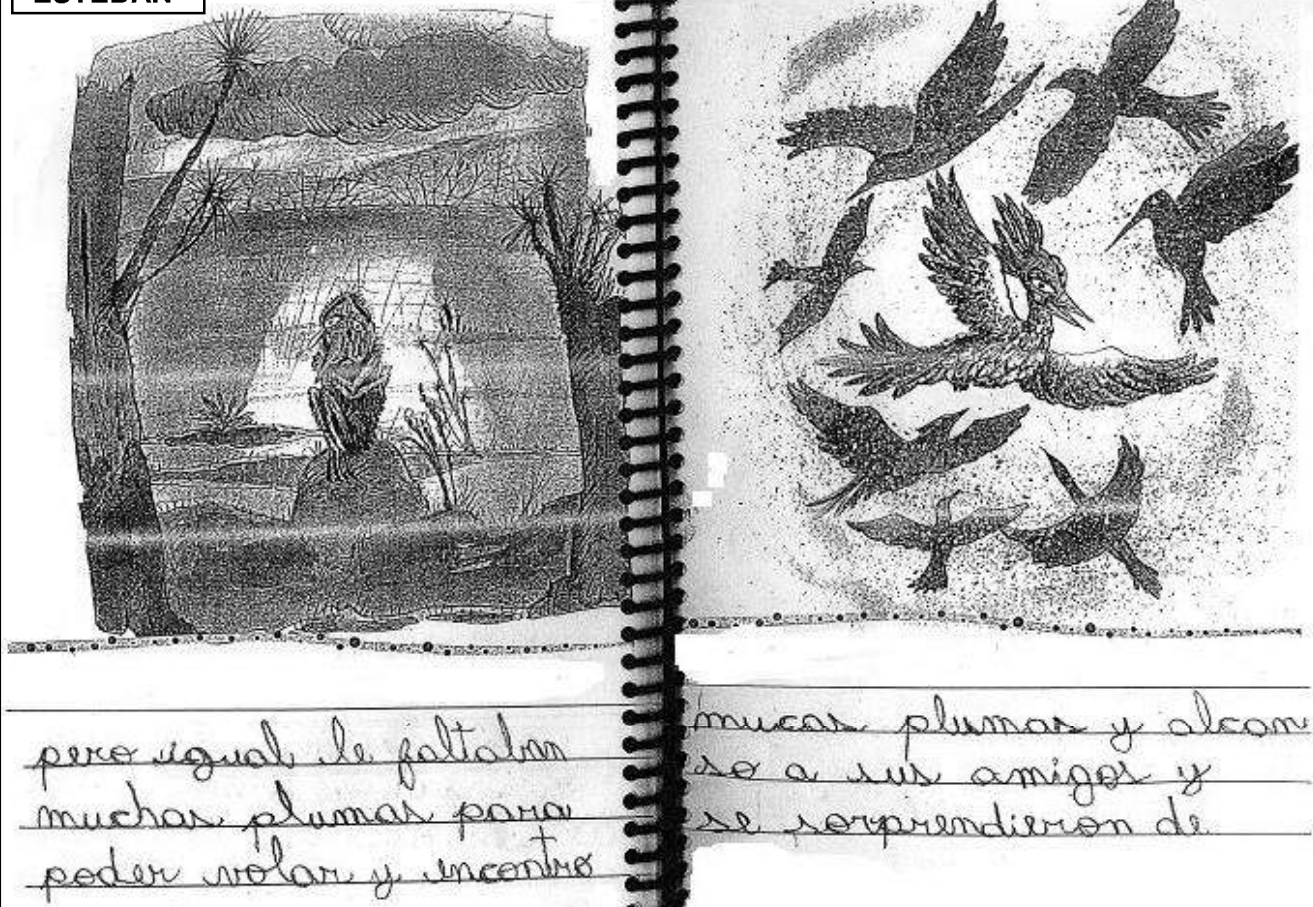 ESTEBAN
pero igual le faltaban
muchas plumas para
poder volar y encontro
mucas plumas y alcan
so a sus amigos y
se sorprendieron de